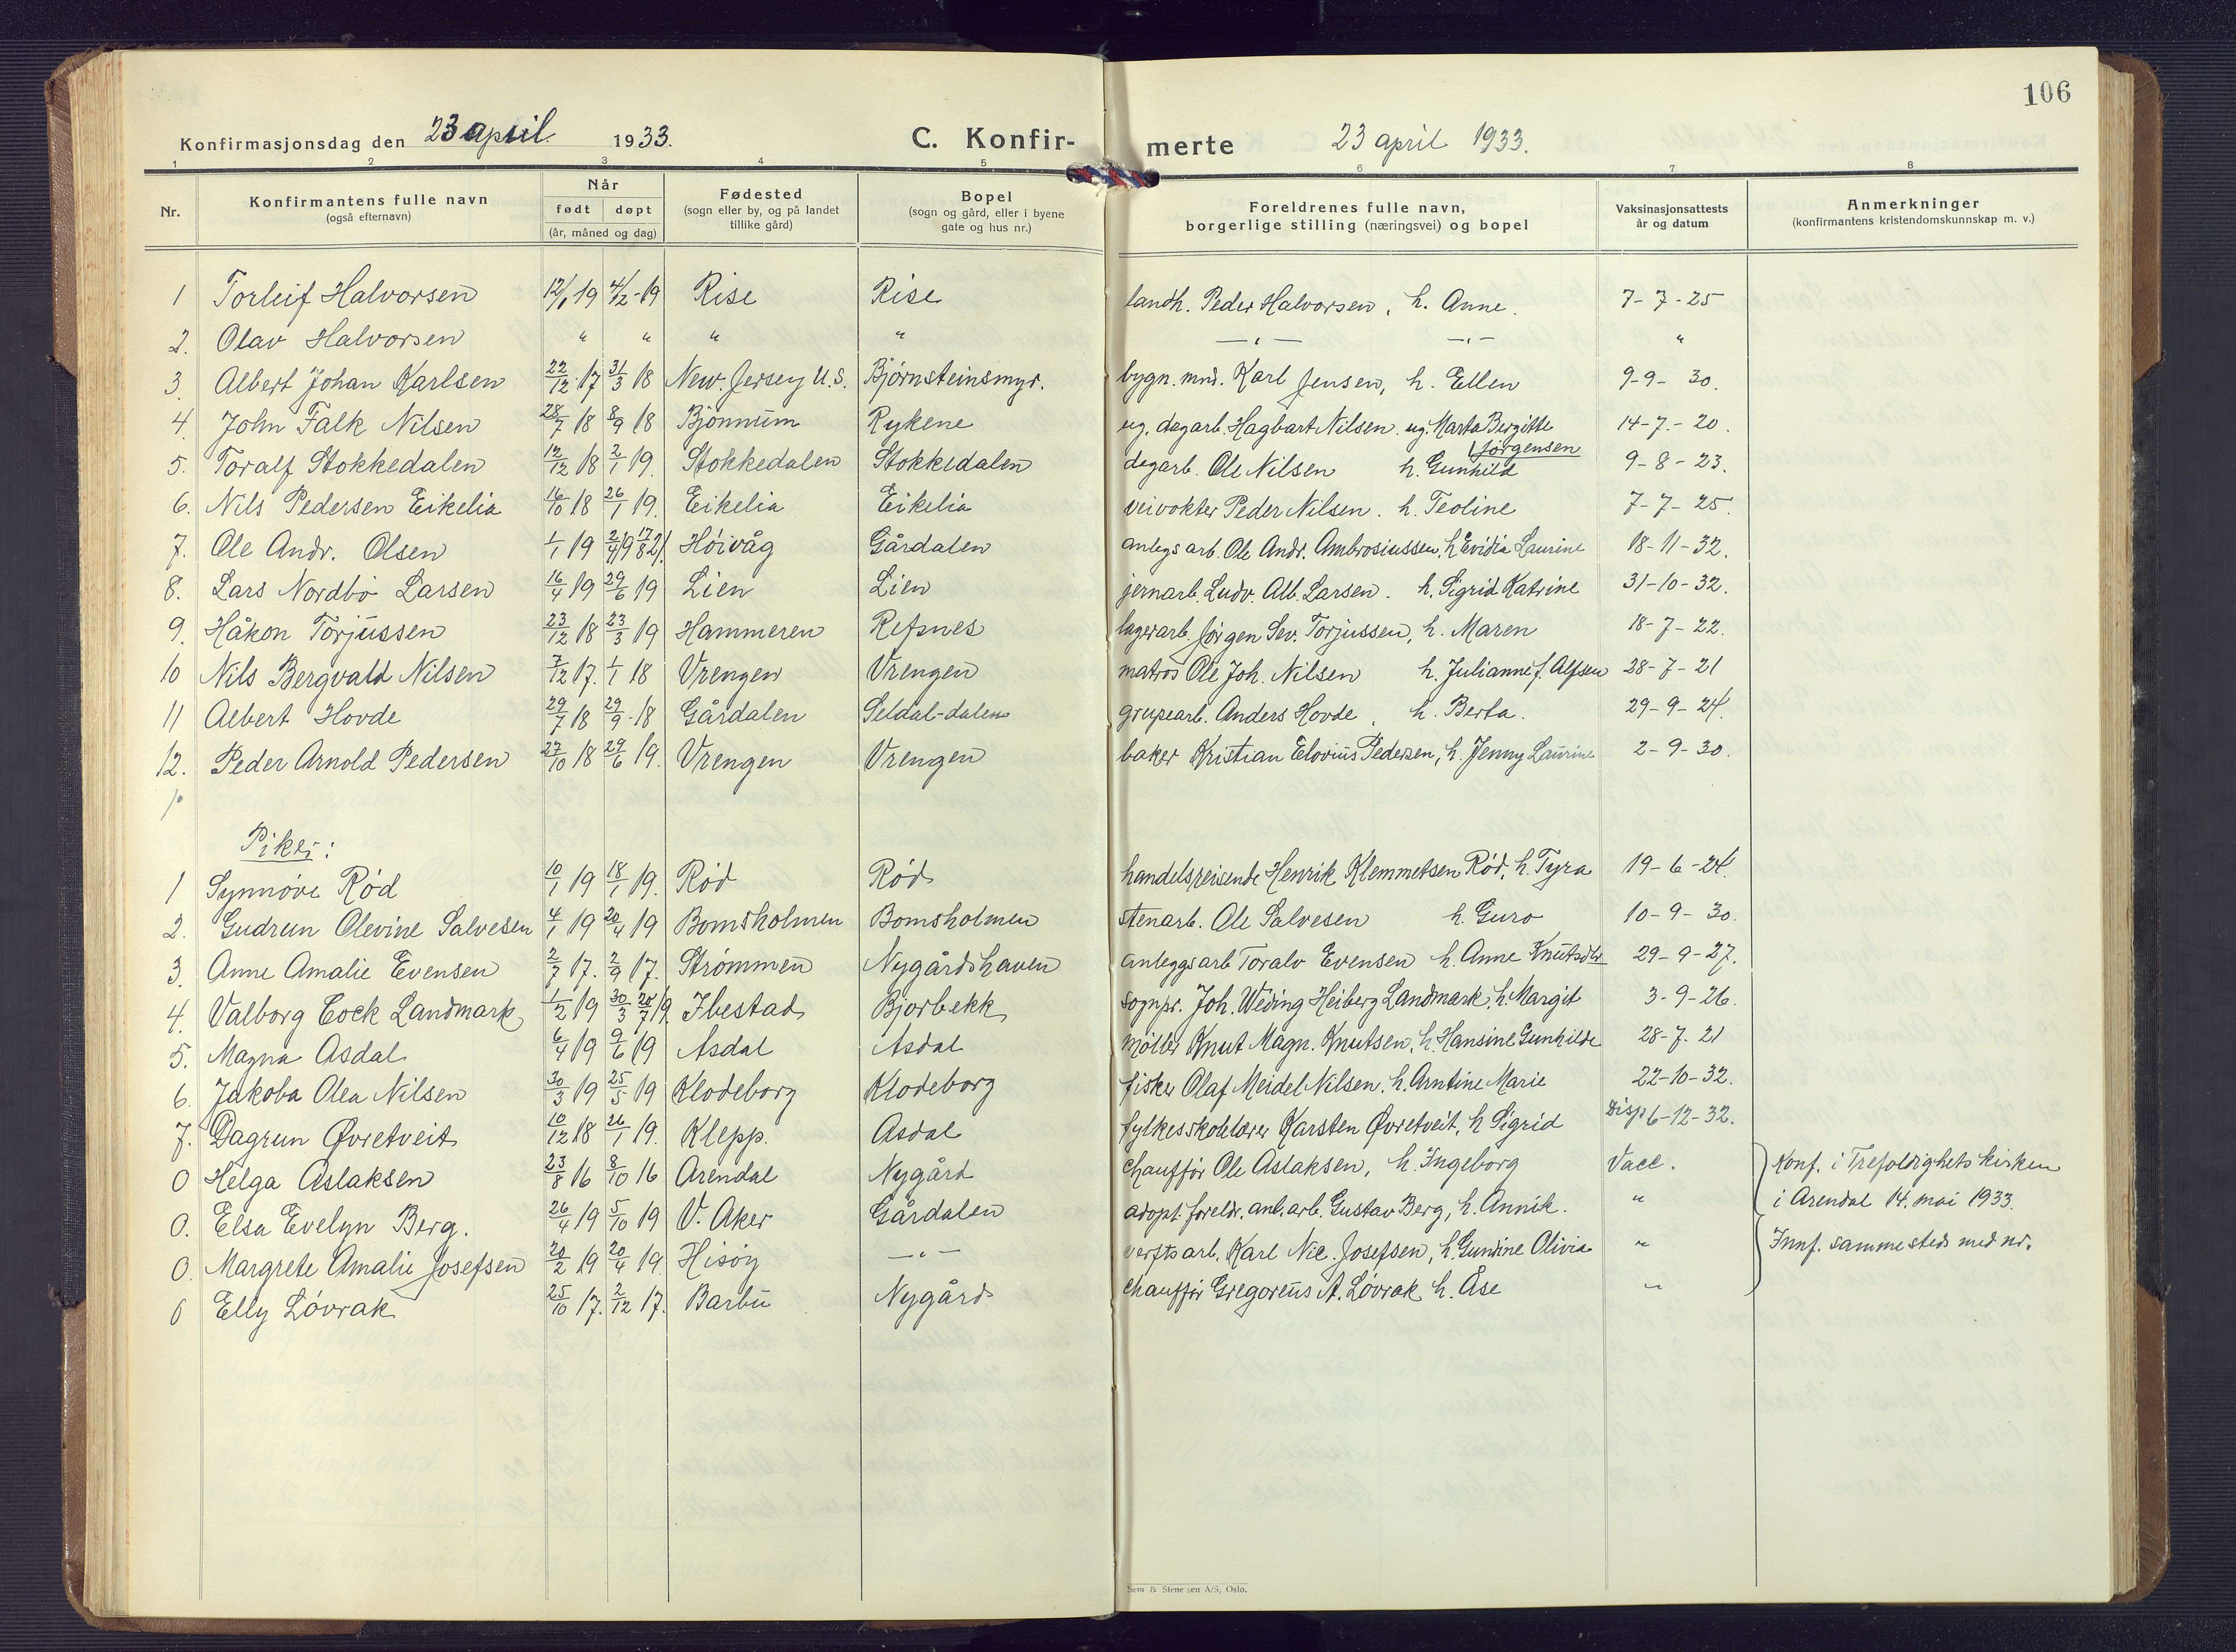 106
Konfirmasjonsdag den 23 april 1933. C. Konfirmerte 23 april 1933.
1 2 3 4 5 6 7 8
Nr. Konfirmantens fulle navn (også efternavn) Når født døpt (år, måned og dag) Fødested (sogn eller by, og på landet tillike gård) Bopel (sogn og gård, eller i byene gate og hus nr.) Foreldrenes fulle navn, borgerlige stilling (næringsvei) og bopel Vaksinasjonsattests år og datum Anmerkninger (konfirmantens kristendomskunnskap m. v.)
1 Torleif Halvorsen 12/1 19 4/2-19 Rise Rise landh. Peder Halvorsen, h. Anne. 7-7-25
2. Olav Halvorsen " " " " —"— —"— "
3. Albert Johan Karlsen 22/12 17 31/3 18 New. Jersey U.S. Bjørnsteinsmyr. bygn. mnd. Karl Jensen, h. Ellen 9-9-30.
4. John Falk Nilsen 28/7 18 8/9 18 Bjønnum Rykene ug. dagarb. Hagbart Nilsen. ug. Marta Bergitte Jørgensen 14-7-20.
5. Toralf Stokkedalen 12/12 18 2/1 19. Stokkedalen Stokkedalen dagarb. Ole Nilsen h. Gunhild 9-8-23.
6. Nils Pedersen Eikelia 16/10 18 26/1 19. Eikelia Eikelia veivokter Peder Nilsen. h. Teoline 7-7-25.
7. Ole Andr. Olsen 1/1 19 2/4 19 17/8 21. Høivåg Gårdalen anlegs arb. Ole Andr. Ambrosiussen, h. Evidia Laurine 18-11-32.
8. Lars Nordbø Larsen 16/4 19 29/6 19 Lien Lien jernarb. Ludv. Alb. Larsen. h. Sigrid Katrine 31-10-32.
9. Håkon Torjussen 23/12 18 23/3 19 Hammeren Refsnes lagerarb. Jørgen Sev. Torjussen, h. Maren 18-7-22.
10 Nils Bergvald Nilsen 7/12 17. 1/1 18 Vrengen Vrengen matros Ole Joh. Nilsen h. Julianne f. Alfsen 28-7-21
11 Albert Hovde 29/7 18 29/9-18 Gårdalen Seldal-dalen grupearb. Anders Hovde, h. Berta. 29-9-24.
12. Peder Arnold Pedersen 27/10 18 29/6 19. Vrengen Vrengen baker Kristian Elovius Pedersen, h. Jenny Laurine 2-9-30.
Piker:
1 Synnøve Rød 10/1 19 18/1 19. Rød Rød handelsreisende Henrik Klemmetsen Rød, h. Tyra 19-6-24.
2. Gudrun Olevine Salvesen 4/1 19 20/4 19 Bomsholmen Bomsholmen stenarb. Ole Salvesen h. Guro 10-9-30.
3. Anne Amalie Evensen 2/7 17. 2/9 17. Strømmen Nygårdshaven anleggsarb Toralv Evensen h. Anne Knutsdtr 29-9-27.
4. Valborg Cock Landmark 1/2 19 30/3 20/7 19. Ibestad Bjorbekk sognpr. Joh. Wéding Heiberg Landmark, h. Margit 3-9-26.
5. Magna Asdal 6/4 19 9/6 19 Asdal Asdal møller Knut Magn. Knutsen, h. Hansine Gunhilde 28-7-21
6. Jakoba Olea Nilsen 30/3 19 25/5 19 Klodeborg Klodeborg fisker Olaf Meidel Nilsen. h. Arntine Marie 22-10-32.
7. Dagrun Øvretveit 10/12 18 26/1 19. Klepp. Asdal fylkesskolelærer Karsten Øvretveit, h Sigrid Disp 6-12-32.
0 Helga Aslaksen 23/8 16 8/10 16 Arendal Nygård chauffør Ole Aslaksen, h. Ingeborg Vacc. Konf. i Trefoldighetskirken
0. Elsa Evelyn Berg. 26/4 19 5/10 19 V. Aker Gårdalen adopt. foreldr. anl. arb. Gustav Berg, h. Annik. " i Arendal 14. mai 1933.
0. Margrete Amalie Josefsen 20/2 19 20/4 19. Hisøy —"— verftsarb. Karl Nic. Josefsen, h. Gundine Olivia " Innf. sammesteds med nr.
0 Elly Løvrak 25/10 17. 2/12 17. Barbu Nygård chauffør Gregoreus A. Løvrak h. Åse "
Sem & Stenersen A/S, Oslo.